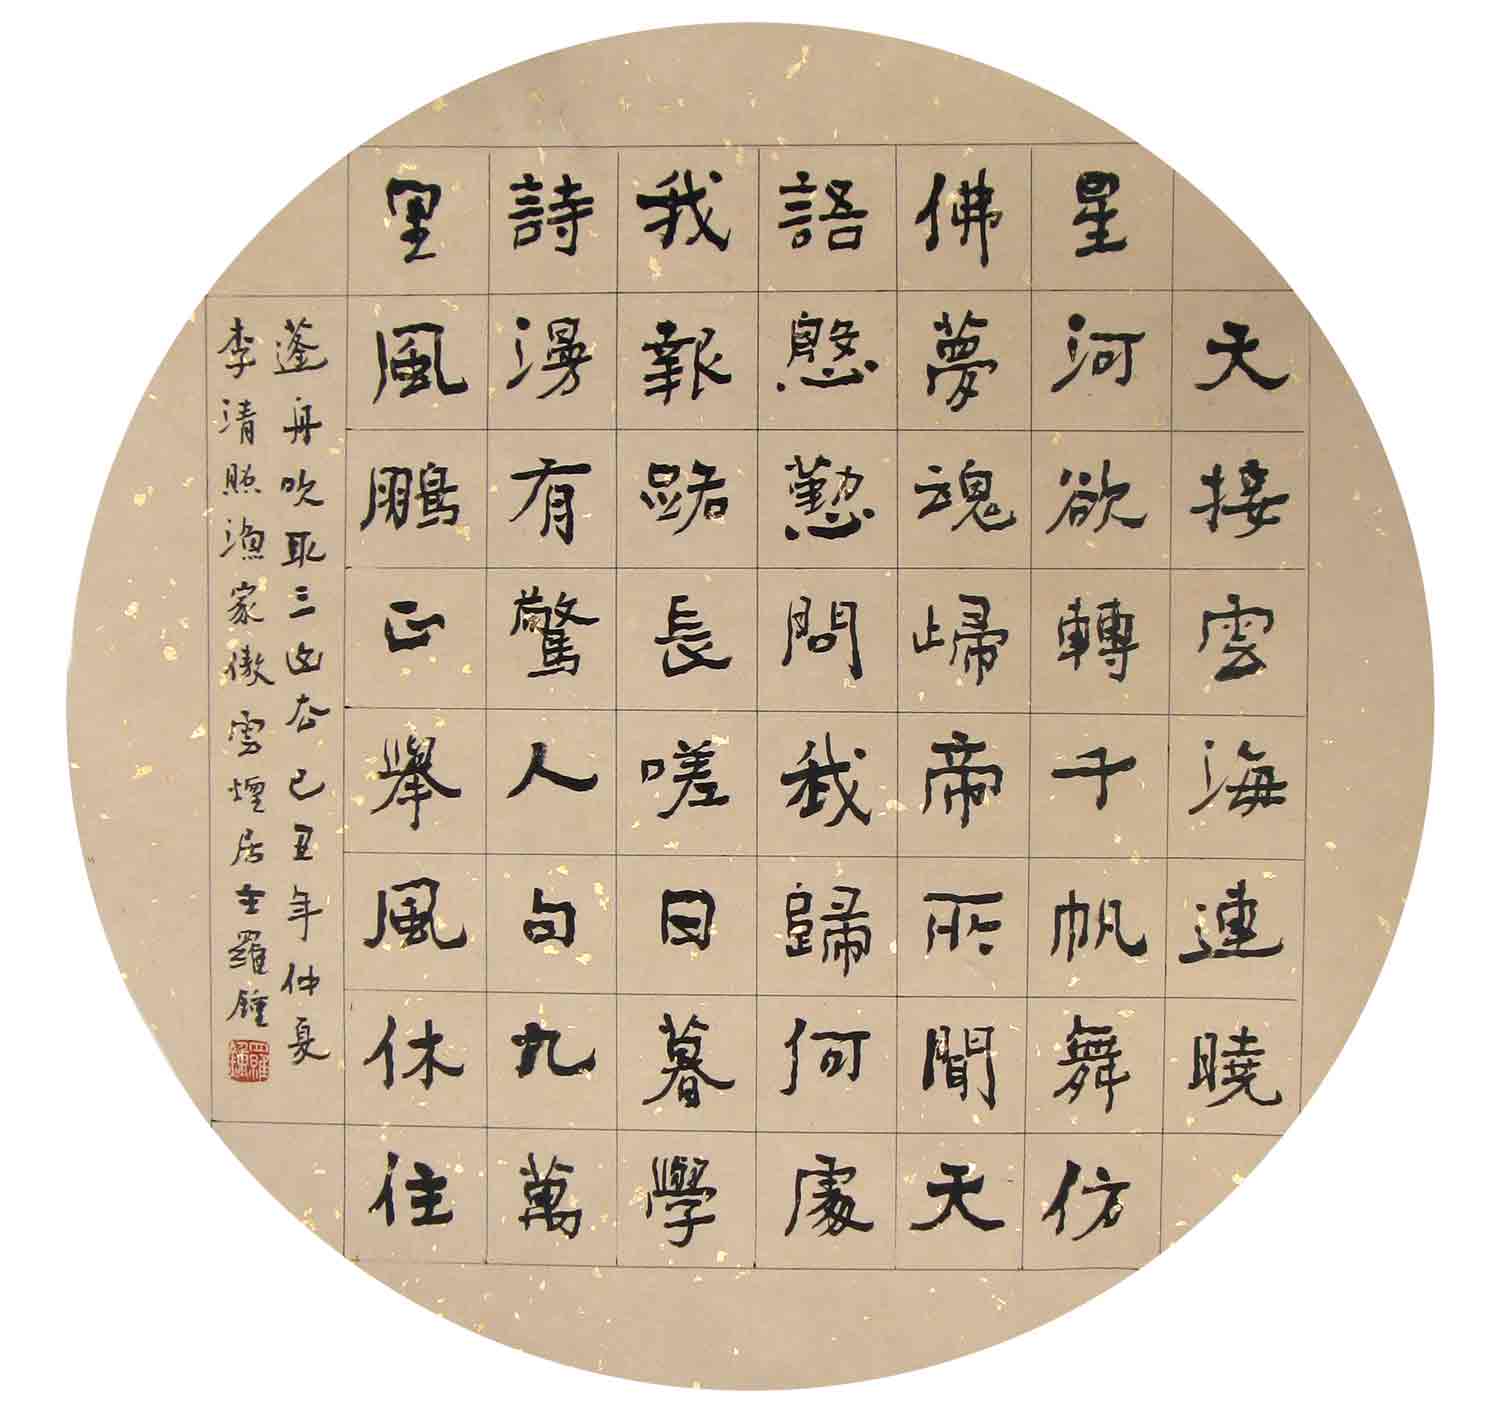 天接雲海連曉
星河欲轉千帆舞仿
佛夢魂歸帝所聞天
語慇懃問我歸何處
我報路長嗟日暮學
詩漫有驚人句九萬
里風鵬正舉風休住
蓬舟吹取三山去己丑年仲夏
李清照漁家傲雪煙居士羅鍾
羅鍾